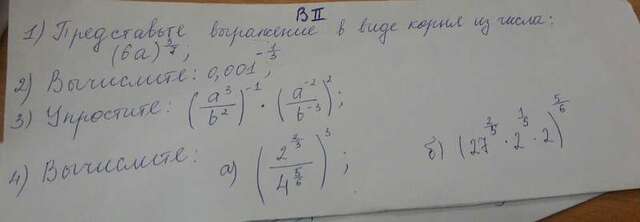 В II
1) Представьте выражение в виде корня из числа:
(6a)^(3/7);
2) Вычислите: 0,001^(-1/3)
3) Упростите: (a^3/b^2)^(-1) · (a^(-2)/b^(-3))^2;
4) Вычислите: а) (2^(2/3)/4^(5/6))^3; б) (27^(2/5) · 2^(1/5) · 2)^(5/6)